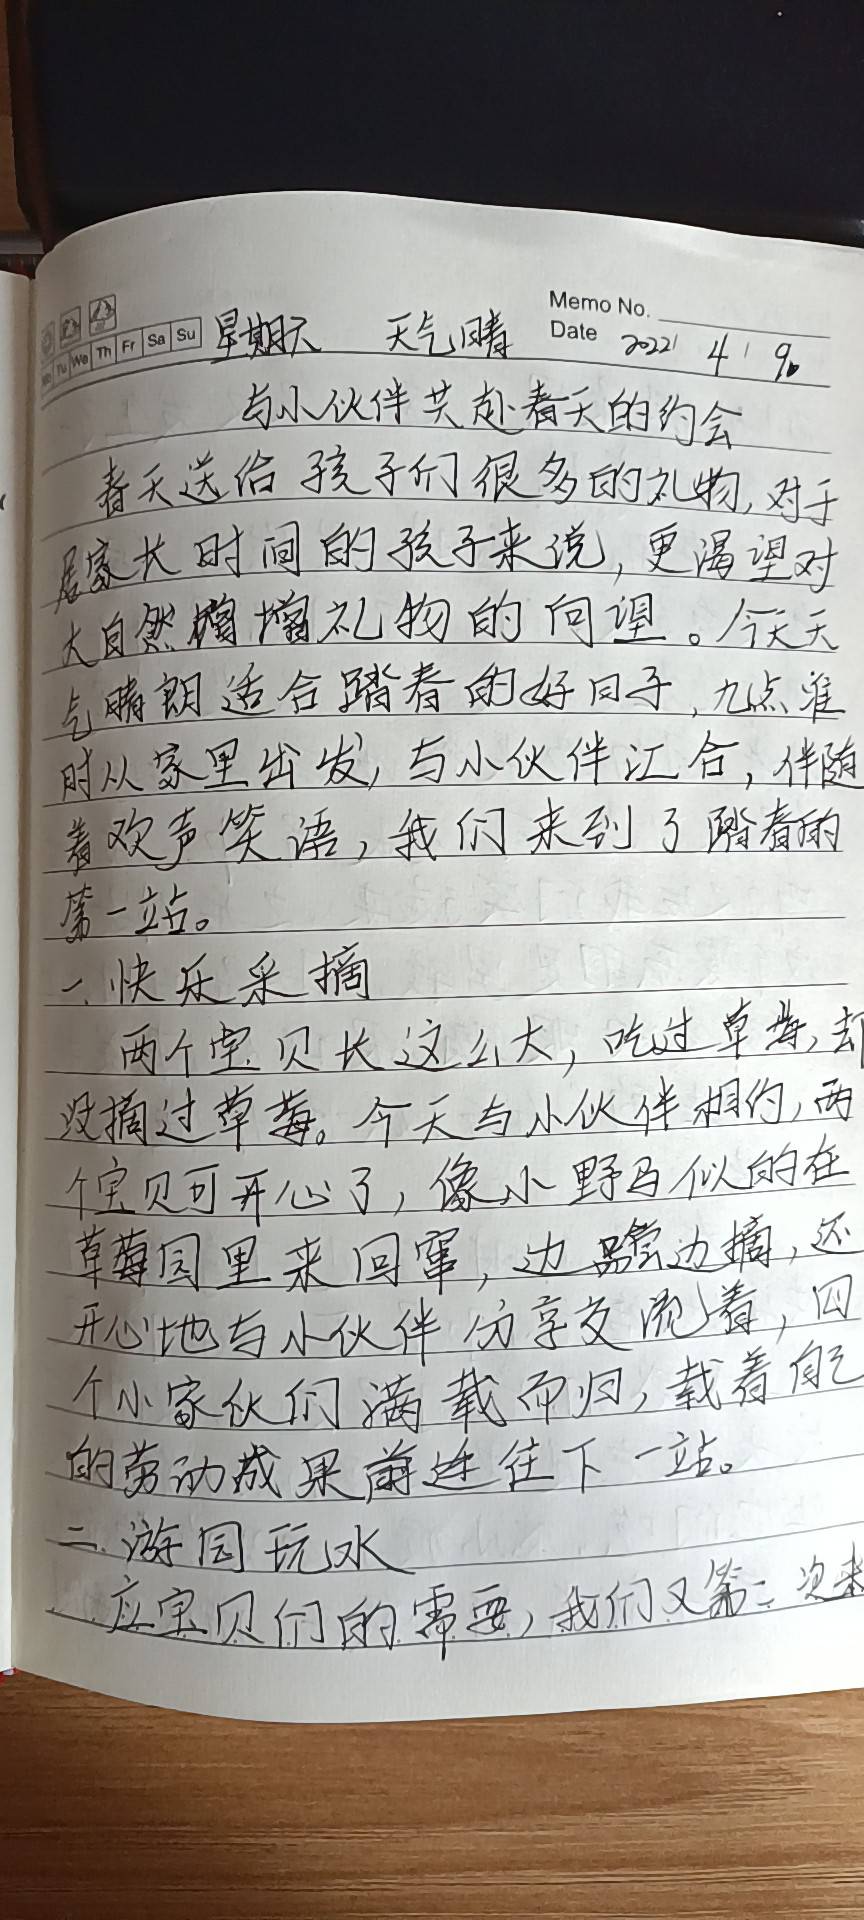 Memo No.
Mo Tu We Th Fr Sa Su 星期天 天气晴 Date 2022 4 9
与小伙伴共赴春天的约会
春天送给孩子们很多的礼物,对于
居家长时间的孩子来说,更渴望对
大自然增增礼物的向望。今天天
气晴朗适合踏春的好日子,九点准
时从家里出发,与小伙伴汇合,伴随
着欢声笑语,我们来到了踏春的
第一站。
一.快乐采摘
两个宝贝长这么大,吃过草莓,却
没摘过草莓。今天与小伙伴相约,两
个宝贝可开心了,像小野马似的在
草莓园里来回窜,边尝边摘,还
开心地与小伙伴分享交流着,四
个小家伙们满载而归,载着自己
的劳动成果前往下一站。
二.游园玩水
应宝贝们的需要,我们又第二次来